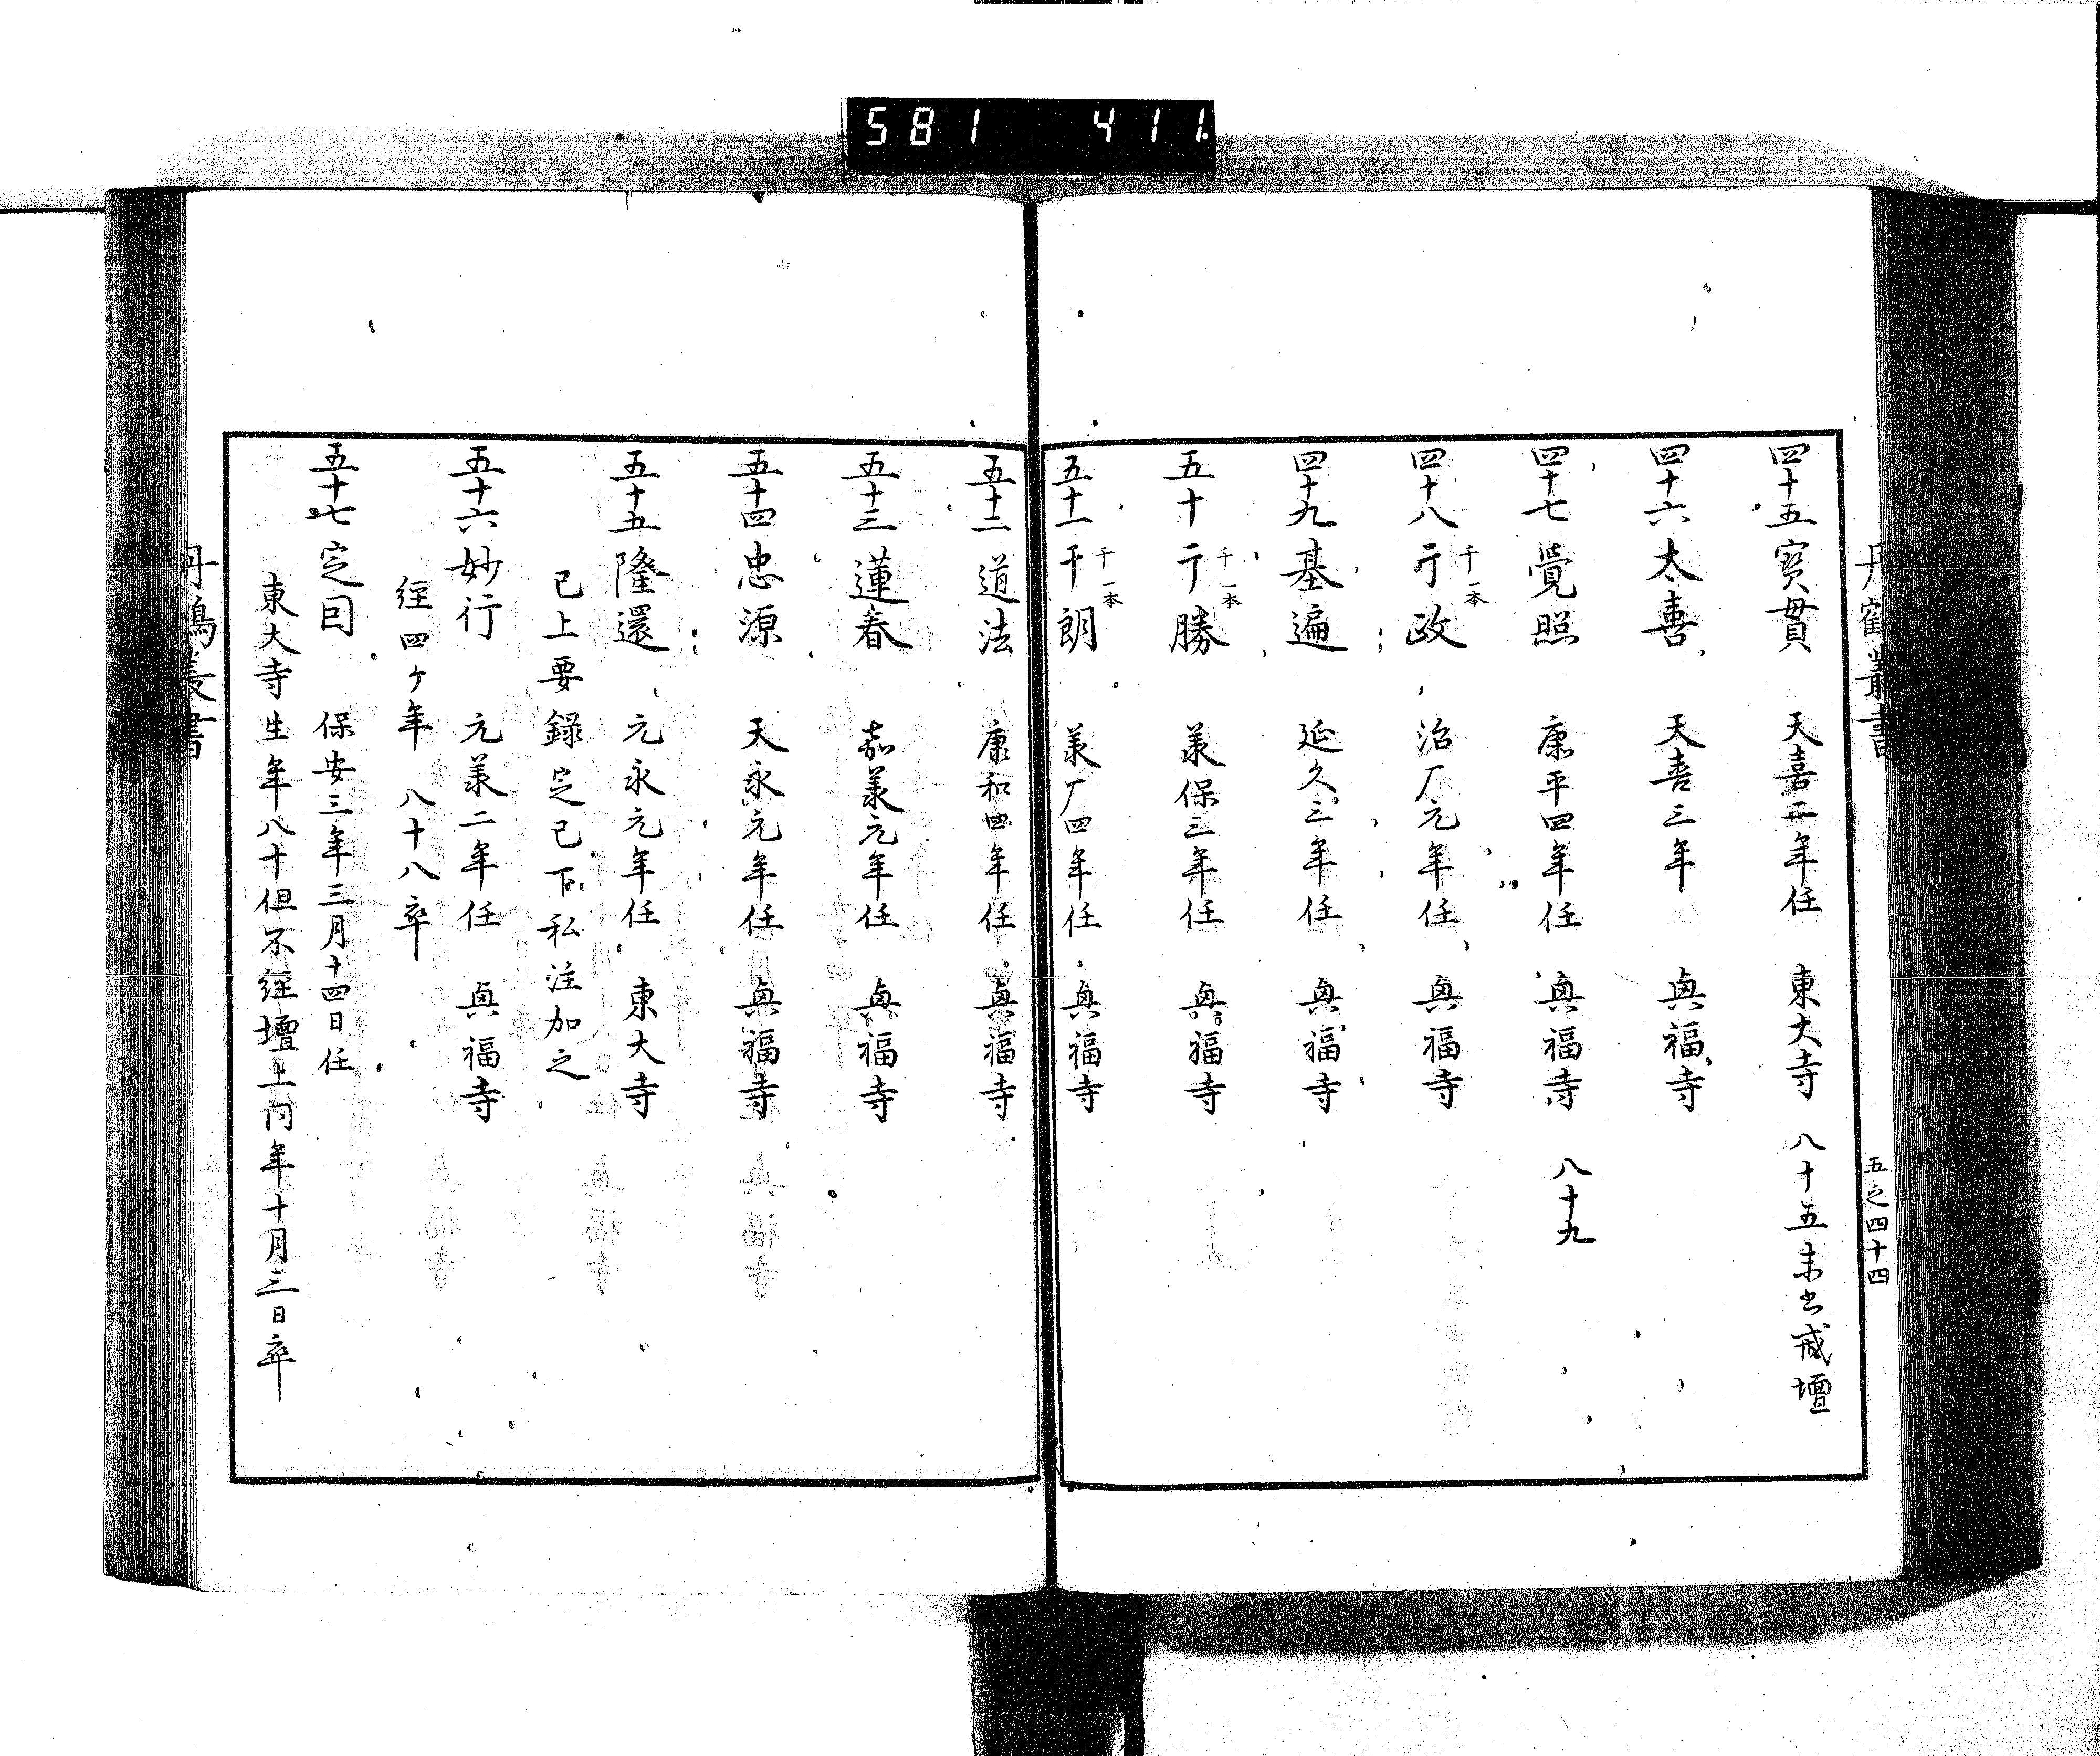 581 411
丹鶴叢書
五之四十四
四十五寳貫 天喜二年任 東大寺 八十五未出戒壇
四十六太喜 天喜三年 奥福寺
四十七覺照 康平四年任 奥福寺 八十九
四十八亍政 治厂元年任 奥福寺
千一本
四十九基遍 延久三年任 奥福寺
五十亍勝 羕保三年任 奥福寺
千一本
五十一千朗 羕厂四年任 奥福寺
千一本
五十二道法 康和四年任 奥福寺
五十三蓮春 嘉羕元年任 奥福寺
五十四忠源 天永元年任 奥福寺
五十五隆還 元永元年任 東大寺
已上要録定已下私注加之
五十六妙行 元羕二年任 奥福寺
経四ケ年 八十八卒
五十七定囙 保安三年三月十四日任
東大寺生年八十但不経壇上同年十月三日卒
丹鶴叢書